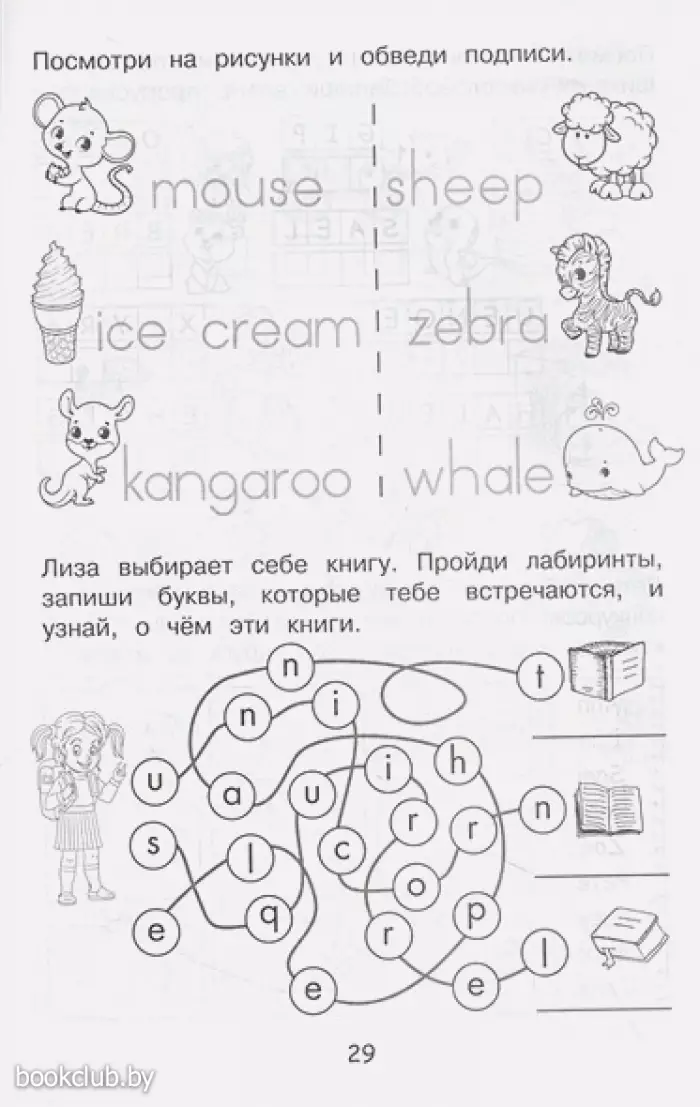 Посмотри на рисунки и обведи подписи.
mouse sheep
ice cream zebra
kangaroo whale
Лиза выбирает себе книгу. Пройди лабиринты,
запиши буквы, которые тебе встречаются, и
узнай, о чём эти книги.
n
t
i
n
h
i
u
a
u
n
r
r
s
l
c
o
q
p
e
r
l
e
e
29
bookclub.by